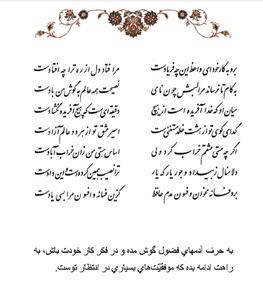 برو به کار خود ای واعظ این چه فریادست مرا فتاد دل از ره ترا چه افتادست
به کام تا نرساند مرا لبش چون نای نصیحت همه عالم به گوش من بادست
میان او که خدا آفریده است از هیچ دقیقه‌ایست که هیچ آفریده نگشادست
گدای کوی تو از هشت خلد مستغنیست اسیر عشق تو از هر دو عالم آزادست
اگر چه مستی عشقم خراب کرد ولی اساس هستی من زان خراب آبادست
دلا منال ز بیداد و جور یار که یار ترا نصیب همین کرده است و این دادست
برو فسانه مخوان و فسون مدم حافظ کزین فسانه و افسون مرا بسی یادست
به حرف آدمهای فضول گوش مده و در فکر کار خودت باش، به
راهت ادامه بده که موفقیّت‌های بسیاری در انتظار توست.